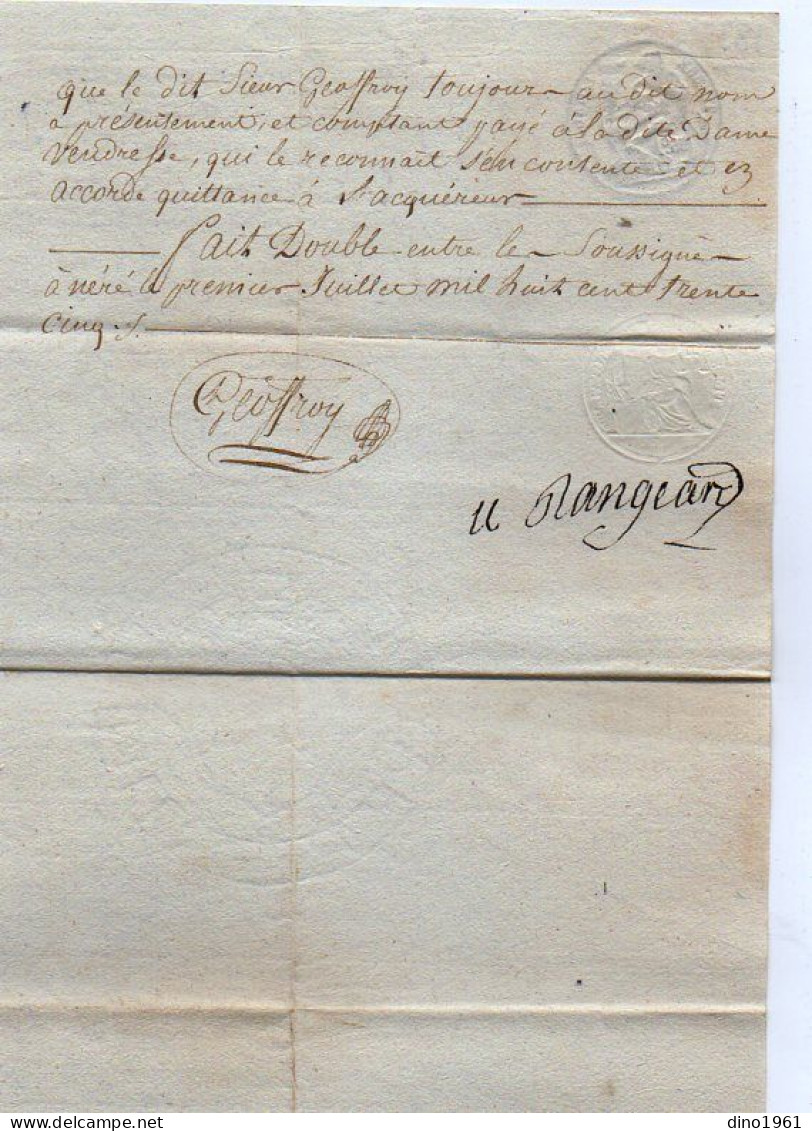 que le dit Sieur Geoffroy toujour au dit nom
a présentement, et comptant payé à la dite Dame
Vendresse, qui le reconnaît s'en contente et en
accorde quittance à l'acquéreur
fait Double entre le Soussigné
à néré le premier Juillet mil huit cent trente
cinq
Geoffroy
Rangeard
delcampe.net
dino1961